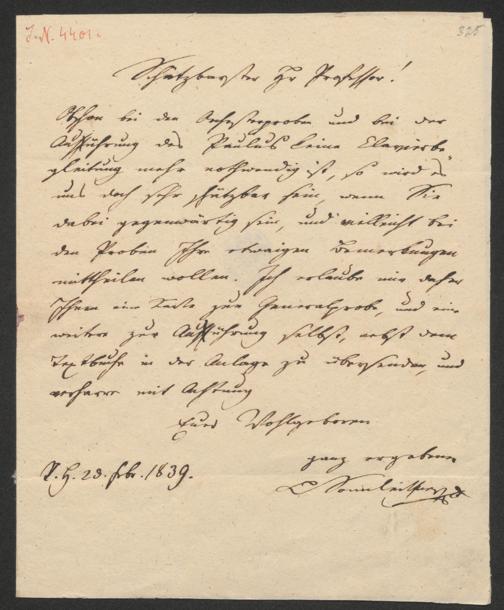 J.N. 4401.
325
Schätzbarster Hr Professor!
Obschon bei den Orchesterproben und bei der
Aufführung des Paulus keine Clavierbe-
gleitung mehr nothwendig ist, so wird es
uns doch sehr schätzbar sein, wenn Sie
dabei gegenwärtig sein, und vielleicht bei
den Proben Ihre etwaigen Bemerkungen
mittheilen wollen. Ich erlaube mir daher
Ihnen eine Karte zur Generalprobe, und eine
weitere zur Aufführung selbst, nebst dem
Textbuche in der Anlage zu übersenden, und
verharre mit Achtung
Euer Wohlgeboren
ganz ergebener
V. H. 28. Febr. 1839.
Sonnleithner